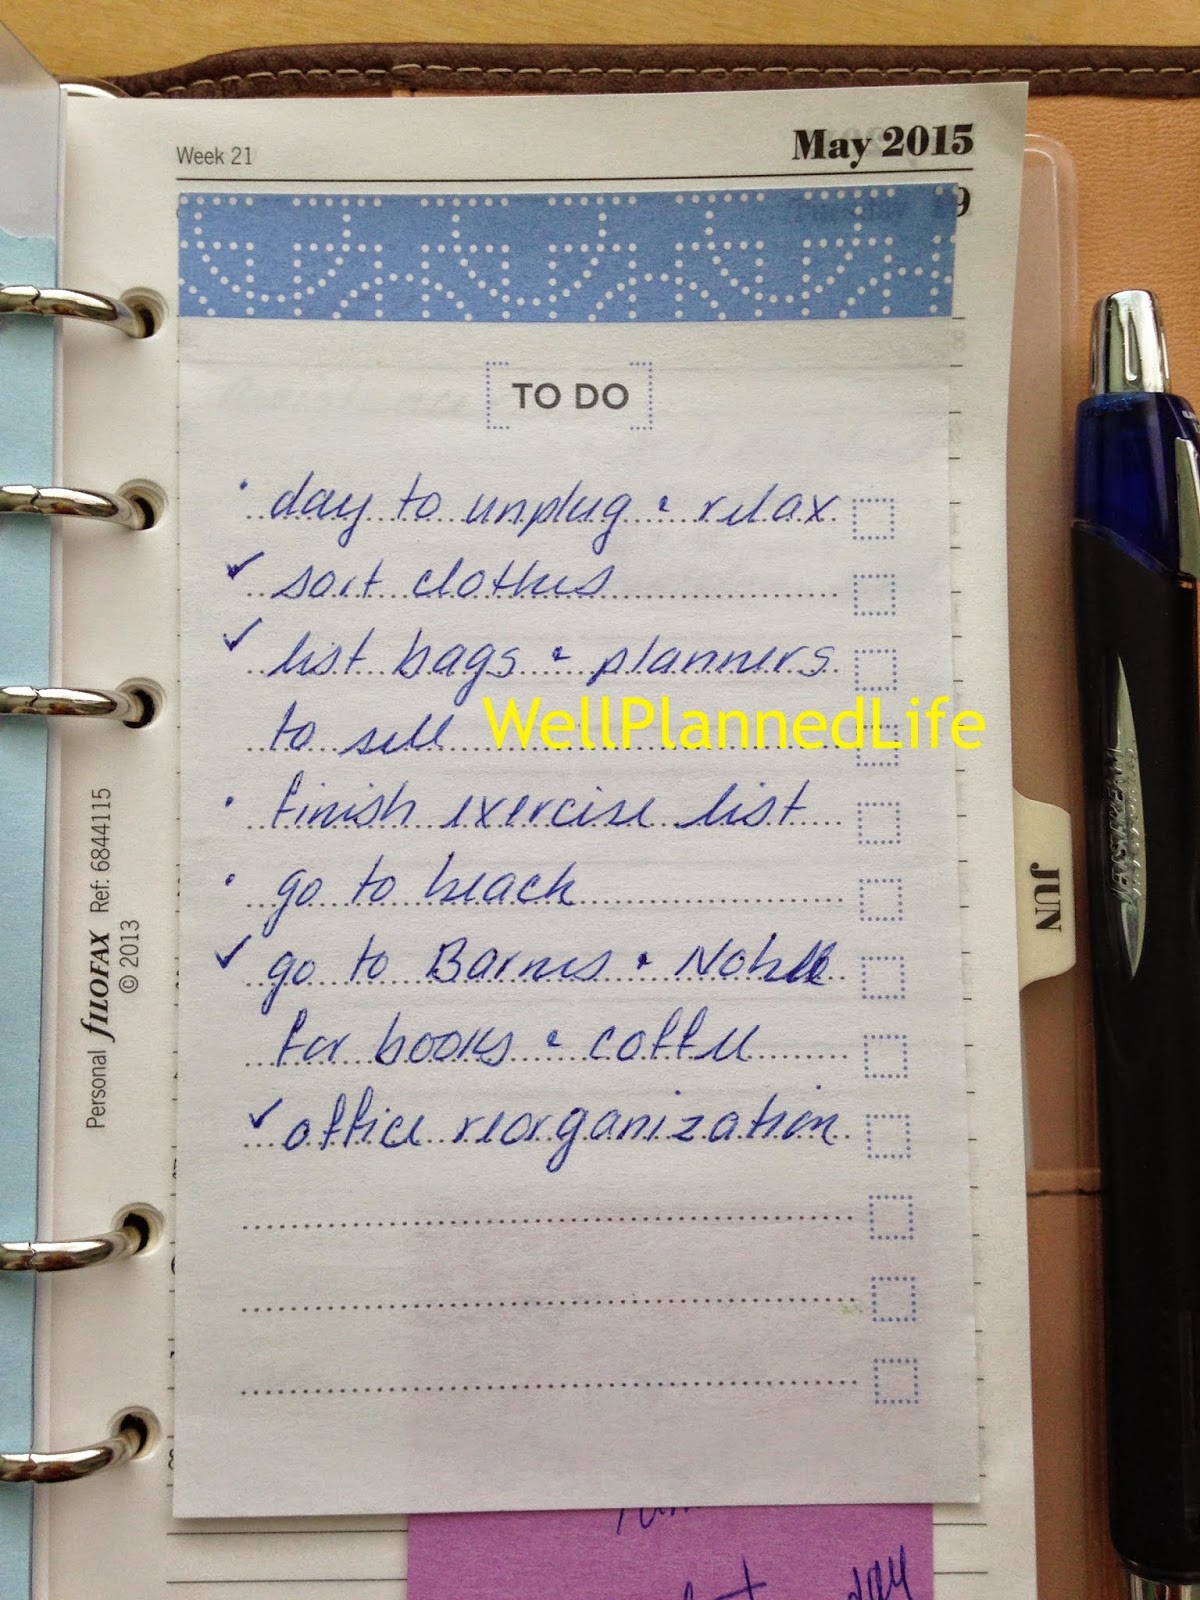 Week 21
May 2015
9
TO DO
• day to unplug & relax
✓ sort clothes
✓ list bags & planners
to sell
WellPlannedLife
• finish exercise list
• go to beach
✓ go to Barnes & Noble
for books & coffee
✓ office reorganization
Personal fILOFAX Ref: 6844115
© 2013
JUN
JETSTREAM
day